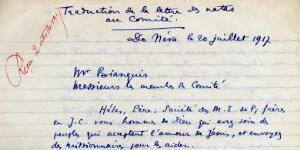 Traduction de la lettre des natas
au Comité.
Do Néva le 20 juillet 1917
Mr Bianquis
Messieurs les membres du Comité
Hélas, Père, Société des M. E. de P, frères
en J.C. vous hommes de Dieu qui avez soin des
peuples qui acceptent l'amour de Jésus, et envoyez
des missionnaires pour les aider.